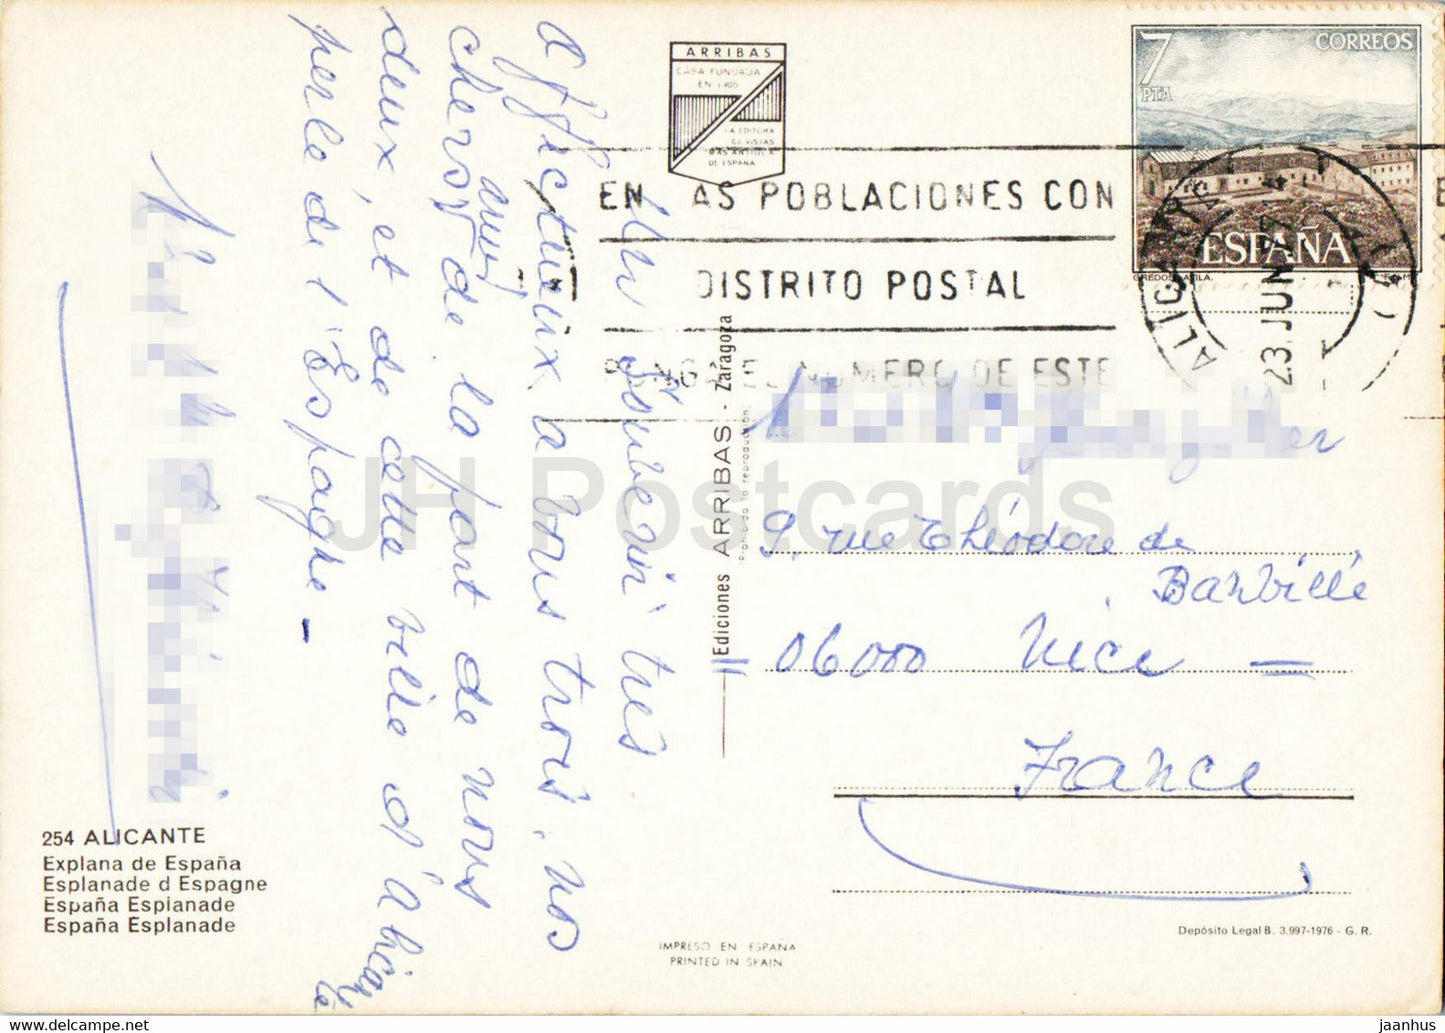 Un souvenir très
affectueux à vous trois, nos
chers amis, de la part de nous
deux, et de cette ville d'Alicante
perle de l'Espagne -
ARRIBAS
CASA FUNDADA
EN 1905
LA EDITORA
DE VISTAS
MAS ANTIGUA
DE ESPAÑA
7
PTA
CORREOS
ESPAÑA
GREDOS-AVILA.
F.N.M.T.
EN LAS POBLACIONES CON
DISTRITO POSTAL
PONGA EL NUMERO DE ESTE
ALICANTE
23 JUN
9, rue Théodore de
Banville
06000 Nice —
France
Ediciones ARRIBAS - Zaragoza
Prohibida la reproducción.
254 ALICANTE
Explana de España
Esplanade d Espagne
España Esplanade
España Esplanade
IMPRESO EN ESPAÑA
PRINTED IN SPAIN
Depósito Legal B. 3.997-1976 - G. R.
JH Postcards
jaanhus